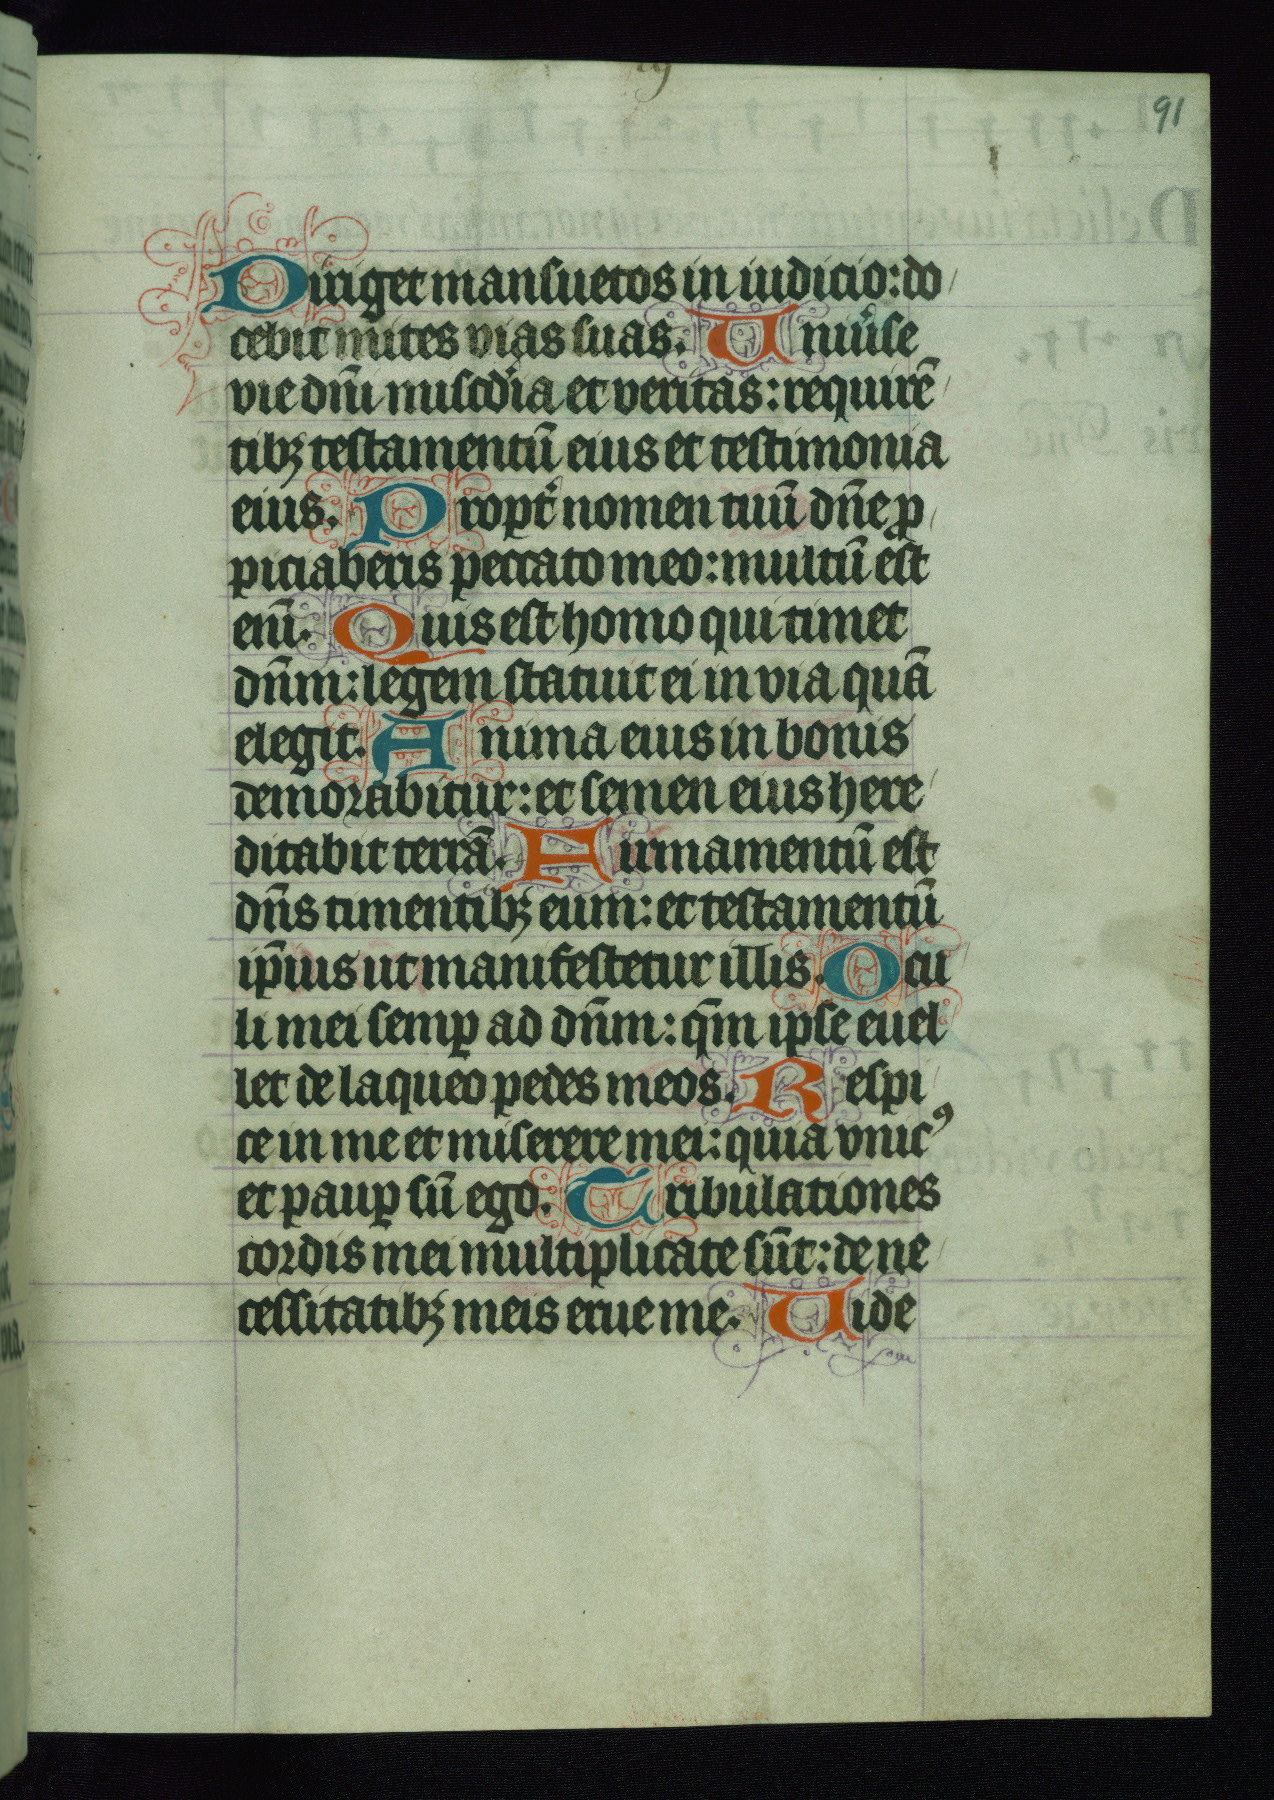 91
Diriget mansuetos in iudicio: do
cebit mites vias suas. Uniu̾se
vie dn̄i misc̄dia et veritas: requirē
tibꝫ testamentū eius et testimonia
eius. Propt̾ nomen tuū dn̄e ꝓ
piciaberis peccato meo: multū est
eni̅. Quis est homo qui timet
dn̄m: legem statuit ei in via quā
elegit. Anima eius in bonis
demorabitur: et semen eius here
ditabit terrā. Firmamentū est
dn̄s timentibꝫ eum: et testamentū
ip̄ius ut manifestetur illis. Ocu
li mei semꝑ ad dn̄m: qm̄ ipse euel
let de laqueo pedes meos. Respi
ce in me et miserere mei: quia vnicꝰ
et pauꝑ sū ego. Tribulationes
cordis mei multiplicate sūt: de ne
cessitatibꝫ meis erue me. Uide